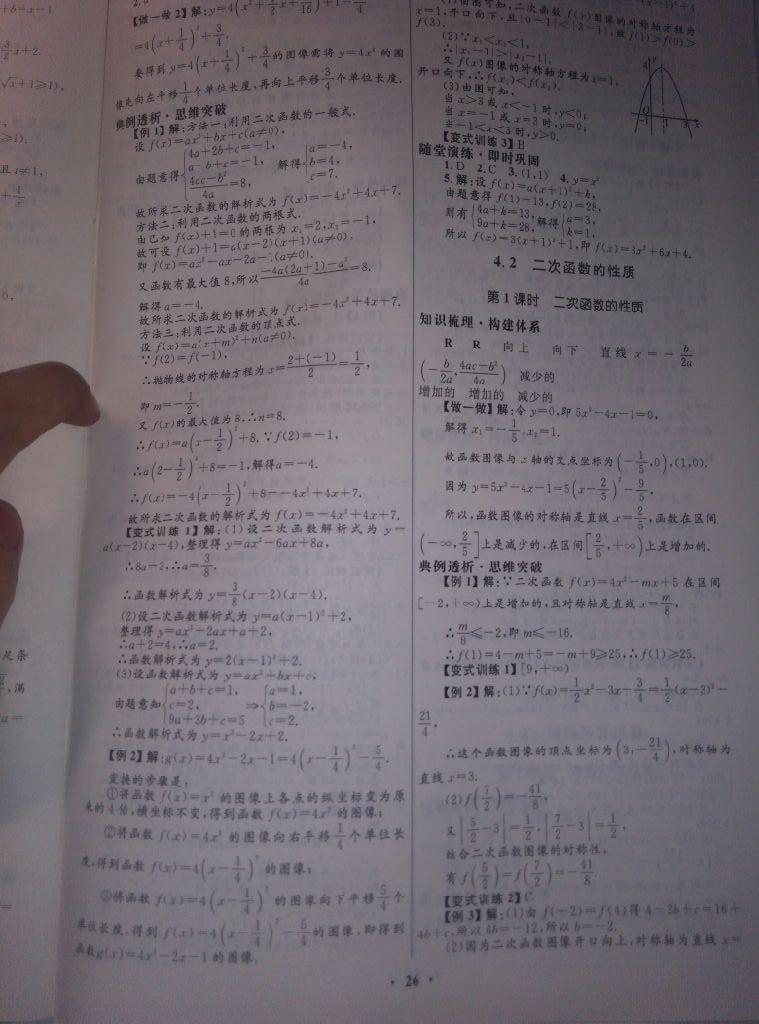 【做一做2】解:y=4(x²+1/2x+1/16)+1-1/4
=4(x+1/4)²+3/4.
要得到y=4(x+1/4)²+3/4的图像需将y=4x²的图
像先向左平移1/4个单位长度,再向上平移3/4个单位长度.
典例透析·思维突破
【例1】解:方法一:利用二次函数的一般式.
设f(x)=ax²+bx+c(a≠0),
由题意得{4a+2b+c=-1, a-b+c=-1, (4ac-b²)/4a=8, 解得{a=-4, b=4, c=7.
故所求二次函数的解析式为f(x)=-4x²+4x+7.
方法二:利用二次函数的两根式.
由已知f(x)+1=0的两根为x₁=2,x₂=-1,
故可设f(x)+1=a(x-2)(x+1)(a≠0),
即f(x)=ax²-ax-2a-1(a≠0).
又函数有最大值8,所以(-4a(2a+1)-a²)/4a=8.
解得a=-4.
故所求二次函数的解析式为f(x)=-4x²+4x+7.
方法三:利用二次函数的顶点式.
设f(x)=a(x+m)²+n(a≠0).
∵f(2)=f(-1),
∴抛物线的对称轴方程为x=(2+(-1))/2=1/2,
即m=-1/2.
又f(x)的最大值为8,∴n=8.
∴f(x)=a(x-1/2)²+8.∵f(2)=-1,
∴a(2-1/2)²+8=-1,解得a=-4.
∴f(x)=-4(x-1/2)²+8=-4x²+4x+7.
故所求二次函数的解析式为f(x)=-4x²+4x+7.
【变式训练1】解:(1)设二次函数解析式为y=
a(x-2)(x-4),整理得y=ax²-6ax+8a,
∴8a=3,∴a=3/8.
∴函数解析式为y=3/8(x-2)(x-4).
(2)设二次函数解析式为y=a(x-1)²+2,
整理得y=ax²-2ax+a+2,
∴a+2=4,∴a=2.
∴函数解析式为y=2(x-1)²+2.
(3)设函数解析式为y=ax²+bx+c,
由题意知{a+b+c=1, c=2, 9a+3b+c=5 ⇒{a=1, b=-2, c=2.
∴函数解析式为y=x²-2x+2.
【例2】解:g(x)=4x²-2x-1=4(x-1/4)²-5/4.
变换的步骤是:
①将函数f(x)=x²的图像上各点的纵坐标变为原
来的4倍,横坐标不变,得到函数f(x)=4x²的图像;
②将函数f(x)=4x²的图像向右平移1/4个单位长
度,得到函数f(x)=4(x-1/4)²的图像;
③将函数f(x)=4(x-1/4)²的图像向下平移5/4个
单位长度,得到f(x)=4(x-1/4)²-5/4的图像,即得到
函数g(x)=4x²-2x-1的图像.
(1)由图可知,二次函数f(x)图像的对称轴方程为
x=1,开口向下,且|0-1|<|3-1|,故f(1)>f(0)>
f(3).
(2)∵x₁<x₂<1,
∴|x₁-1|>|x₂-1|.
又f(x)图像的对称轴方程为x=1,
开口向下,∴f(x₁)<f(x₂).
(3)由图可知,
当x>3或x<-1时,y<0;
当x=-1或x=3时,y=0;
当-1<x<3时,y>0.
【变式训练3】B
随堂演练·即时巩固
1.D 2.C 3.(1,1) 4.y=x²
5.解:设f(x)=a(x+1)²+k,
由题意得f(1)=13,f(2)=28,
则有{4a+k=13, 9a+k=28, 解得{a=3, k=1.
所以f(x)=3(x+1)²+1,即f(x)=3x²+6x+4.
4.2 二次函数的性质
第1课时 二次函数的性质
知识梳理·构建体系
R R 向上 向下 直线x=-b/2a
(-b/2a,(4ac-b²)/4a) 减少的
增加的 增加的 减少的
【做一做】解:令y=0,即5x²-4x-1=0,
解得x₁=-1/5,x₂=1.
故函数图像与x轴的交点坐标为(-1/5,0),(1,0).
因为y=5x²-4x-1=5(x-2/5)²-9/5,
所以,函数图像的对称轴是直线x=2/5,函数在区间
(-∞,2/5]上是减少的,在区间[2/5,+∞)上是增加的.
典例透析·思维突破
【例1】解:∵二次函数f(x)=4x²-mx+5在区间
[-2,+∞)上是增加的,且对称轴是直线x=m/8,
∴m/8≤-2,即m≤-16.
∴f(1)=4-m+5=-m+9≥25,∴f(1)≥25.
【变式训练1】[9,+∞)
【例2】解:(1)∵f(x)=1/2x²-3x-3/4=1/2(x-3)²-
21/4,
∴这个函数图像的顶点坐标为(3,-21/4),对称轴为
直线x=3.
(2)f(7/2)=-41/8,
又|5/2-3|=1/2,|7/2-3|=1/2,
结合二次函数图像的对称性,
有f(5/2)=f(7/2)=-41/8.
【变式训练2】C
【例3】解:(1)由f(-2)=f(4)得4-2b+c=16+
4b+c,所以6b=-12,所以b=-2.
(2)因为二次函数图像开口向上,对称轴为直线x=
·26·